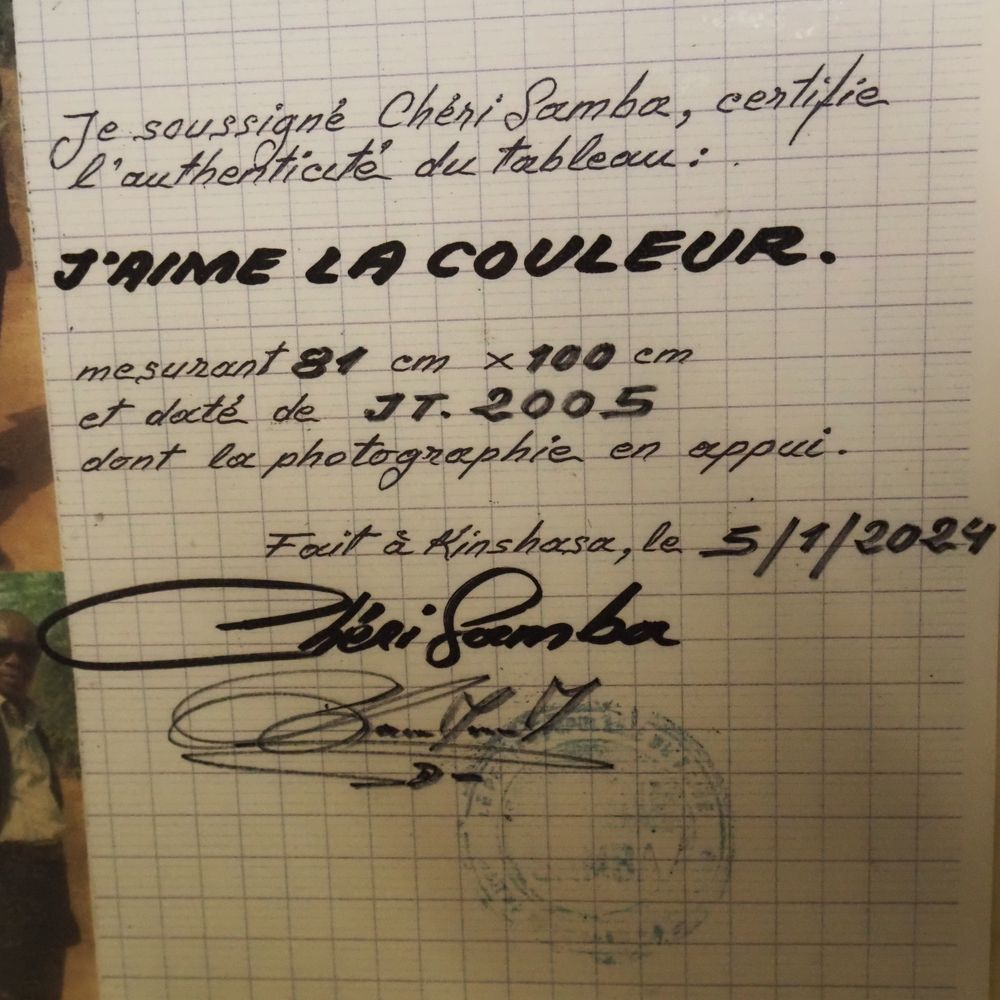 Je soussigné Chéri Samba, certifie
l'authenticité du tableau :
J'AIME LA COULEUR.
mesurant 81 cm x 100 cm
et daté de JT. 2005
dont la photographie en appui.
Fait à Kinshasa, le 5/1/2024
Chéri Samba